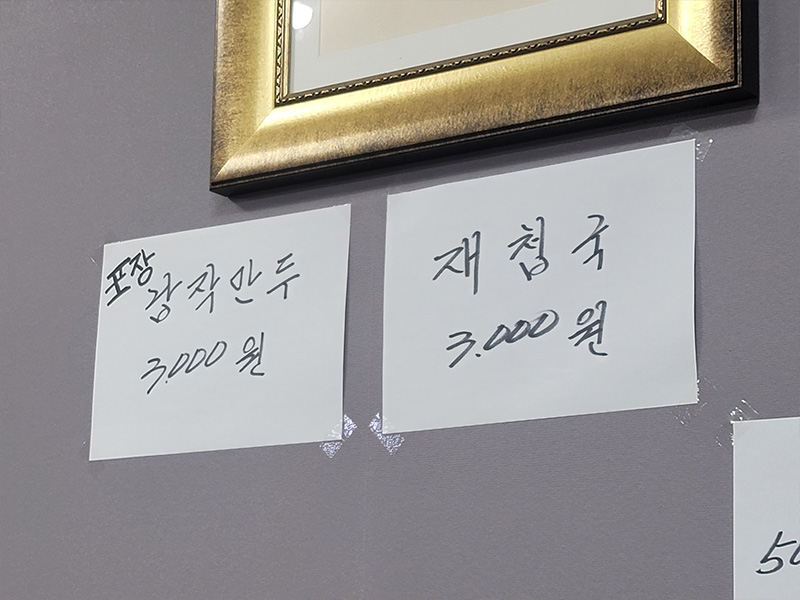 포장
랑작만두
3.000원
재첩국
3.000원
50